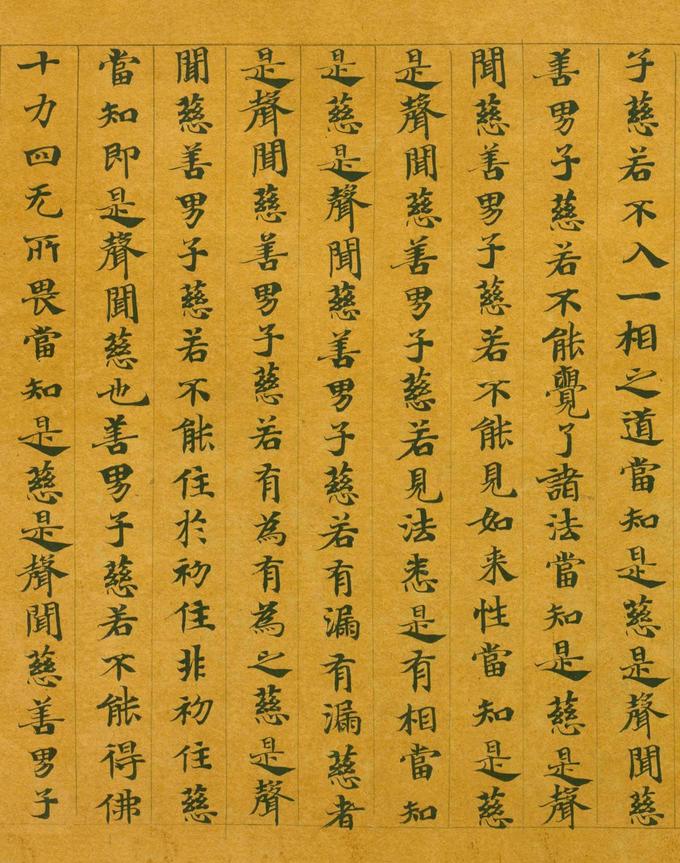 子慈若不入一相之道當知是慈是聲聞慈
善男子慈若不能覺了諸法當知是慈是聲
聞慈善男子慈若不能見如来性當知是慈
是聲聞慈善男子慈若見法悉是有相當知
是慈是聲聞慈善男子慈若有漏有漏慈者
是聲聞慈善男子慈若有為有為之慈是聲
聞慈善男子慈若不能住於初住非初住慈
當知即是聲聞慈也善男子慈若不能得佛
十力四无所畏當知是慈是聲聞慈善男子